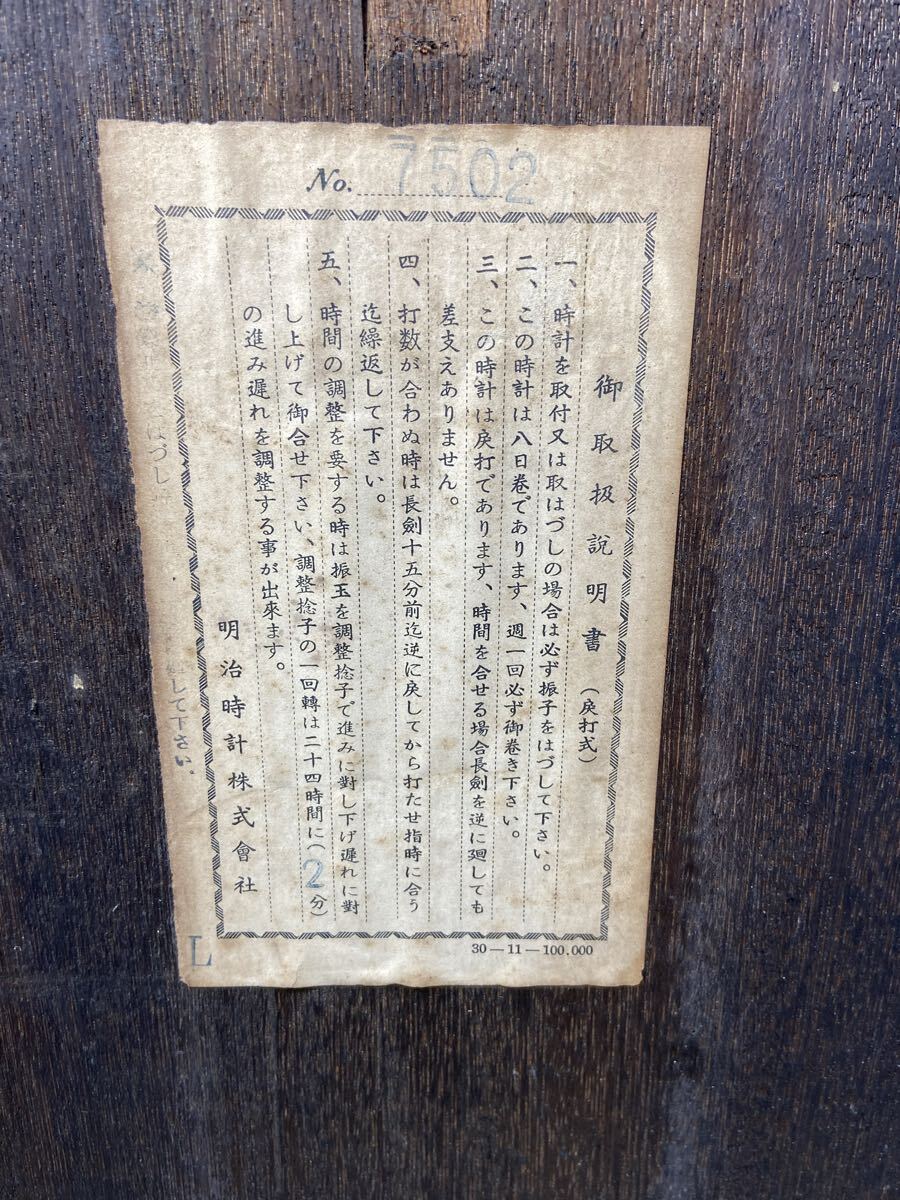 No. 7502
御取扱説明書（戻打式）
一、時計を取付又は取はづしの場合は必ず振子をはづして下さい。
二、この時計は八日巻であります、週一回必ず御巻き下さい。
三、この時計は戻打であります、時間を合せる場合長劍を逆に廻しても
差支えありません。
四、打数が合わぬ時は長劍十五分前迄逆に戻してから打たせ指時に合う
迄繰返して下さい。
五、時間の調整を要する時は振玉を調整捻子で進みに對し下げ遅れに對
し上げて御合せ下さい、調整捻子の一回轉は二十四時間に（2分）
の進み遅れを調整する事が出來ます。
明治時計株式會社
はづし
して下さい。
L
30—11—100,000